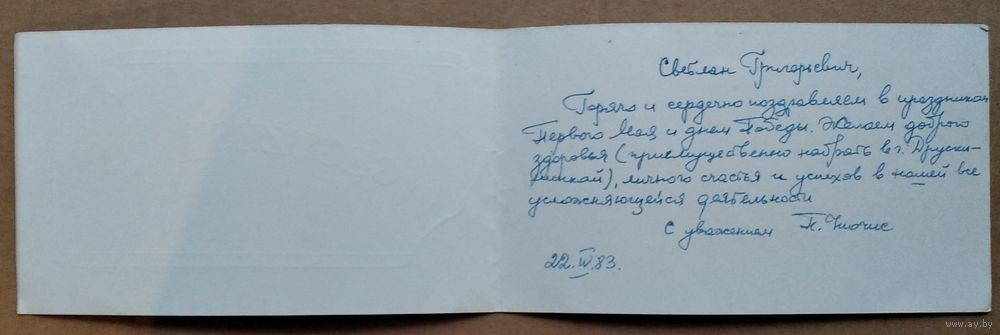 Светлан Григорьевич,
Горячо и сердечно поздравляем с праздником
Первого Мая и днем Победы. Желаем доброго
здоровья (преимущественно набрать в г. Друски-
нинкай), личного счастья и успехов в нашей все
усложняющейся деятельности
С уважением П.
22.IV.83.
www.ay.by